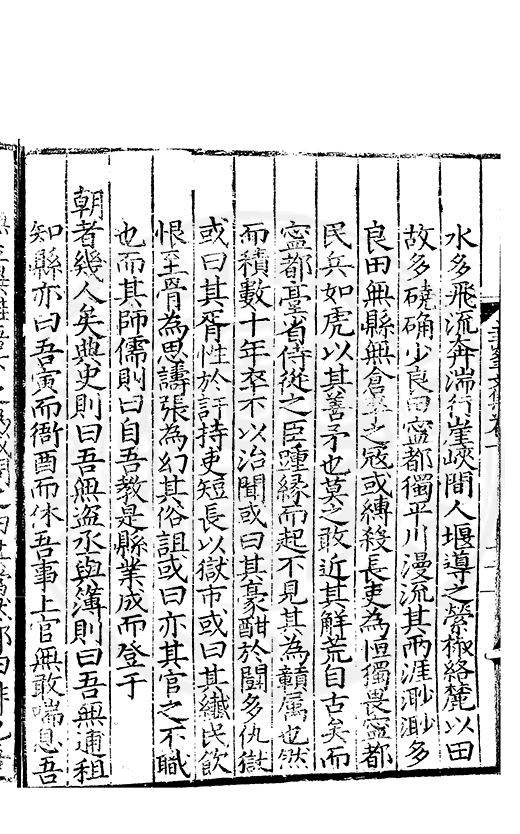 水多飛流奔湍行崖峽間人堰導之縈椒絡麓以田
故多磽确少良田寍都獨平川漫流其兩涯渺渺多
良田無縣無倉卒之寇或縛殺長吏為恒獨畏寍都
民兵如虎以其善矛也莫之敢近其鮮荒自古矣而
寍都臺省侍從之臣踵緣而起不見其為贛属也然
而積數十年卒不以治聞或曰其豪酣於鬪多仇獄
或曰其胥性於訐持吏短長以獄市或曰其纎民飲
恨至骨為思譸張為幻其俗詛或曰亦其官之不職
也而其師儒則曰自吾教是縣業成而登于
朝者幾人矣典史則曰吾無盗丞與簿則曰吾無逋租
知縣亦曰吾寅而衙酉而休吾事上官無敢喘息吾